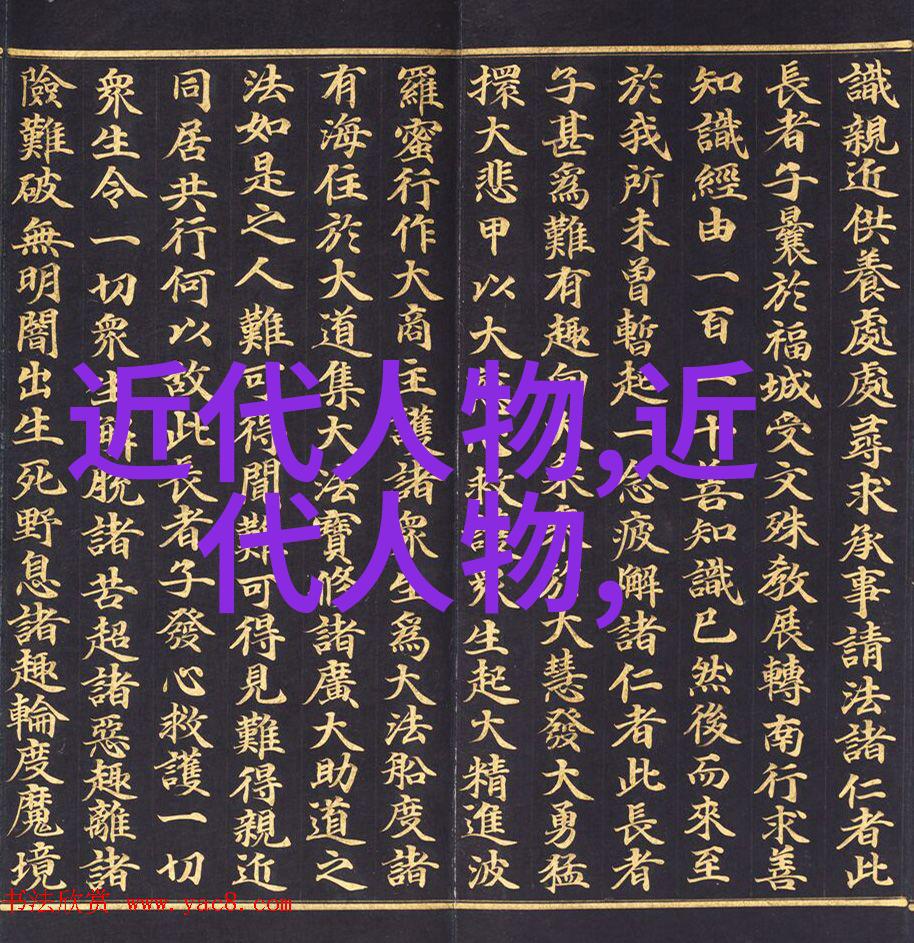 識親近供養處處尋求承事請法諸仁者此
長者子曩於福城受文殊教展轉南行求善
知識經由一百一十善知識已然後而來至
於我所未曾暫起一念疲解諸仁者此長者
子甚爲難有趣向大乘乘於大慧發大勇猛
擐大悲甲以大慈心救護衆生起大精進波
羅蜜行作大商主護諸衆生爲大法船度諸
有海住於大道集大法寶修諸廣大助道之
法如是之人難可得聞難可得見難得親近
同居共行何以故此長者子發心救護一切
衆生令一切衆生解脫諸苦超諸惡趣離諸
險難破無明闇出生死野息諸趣輪度魔境
近代人物,近
代人物,
书法欣赏 www.yac8.com